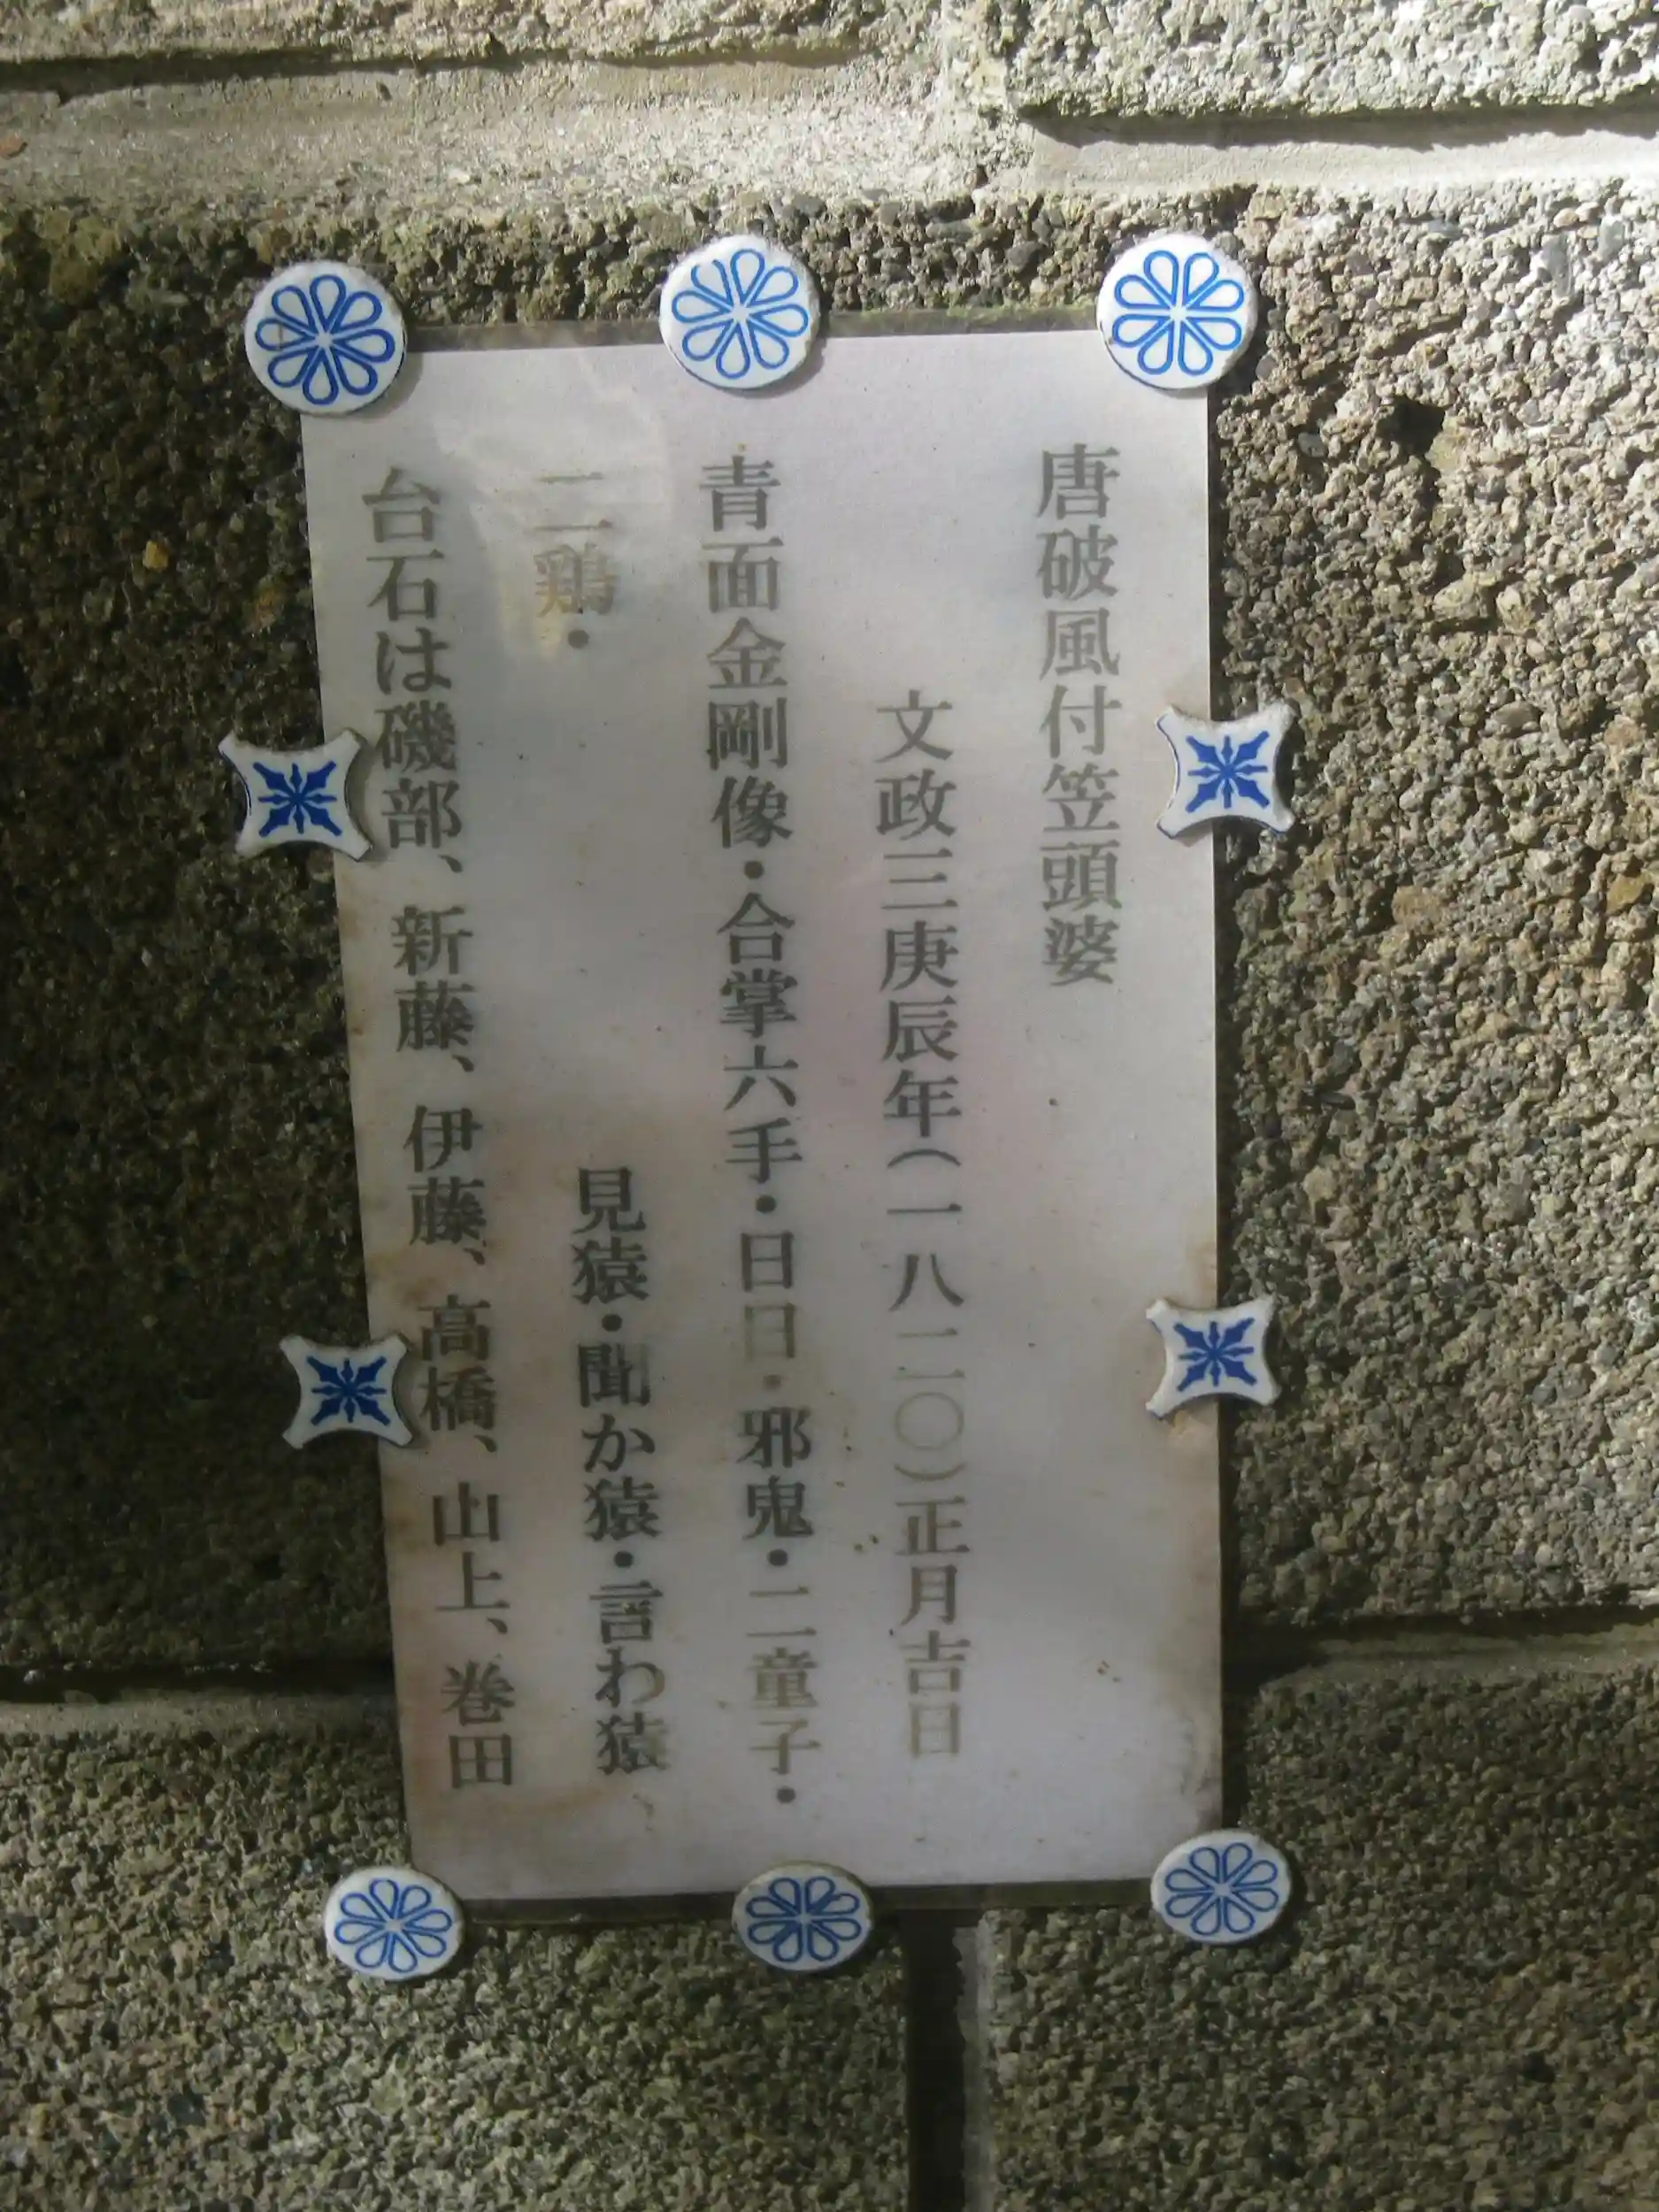 唐破風付笠頭婆
文政三庚辰年(一八二〇)正月吉日
青面金剛像・合掌六手・日日・邪鬼・二童子・
二鶏・　見猿・聞か猿・言わ猿、
台石は磯部、新藤、伊藤、高橋、山上、巻田